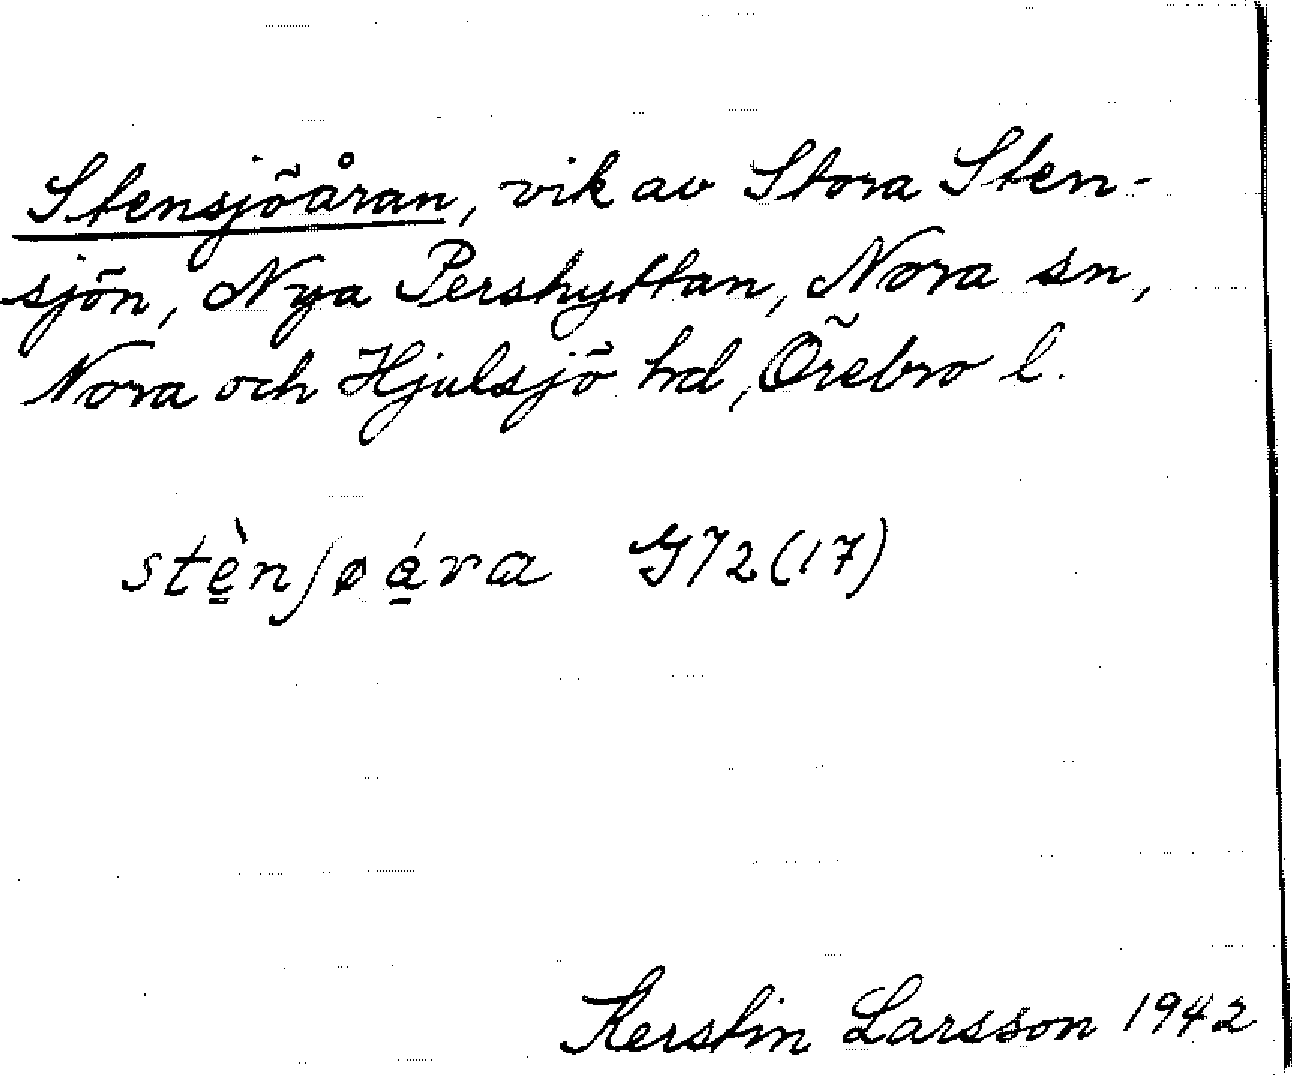 Stensjöåran, vik av Stora Sten-
sjön, Nya Pershyttan, Nora sn,
Nora och Hjulsjö hd, Örebro l.
stè̳nʃøá̳ra G72(17)
Kerstin Larsson 1942